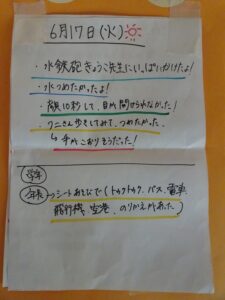 6月17日(火)
・水鉄砲きょうこ先生にいっぱいかけたよ!
・水つめたかったよ!
・顔10秒して、目が開けられなかった!
・ワニさん歩きしてみて、つめたかった。
↳手がこおりそうだった!
学年
年長→シートあそびで(トゥクトゥク、バス、電車
飛行機、空港、のりかえがあった)